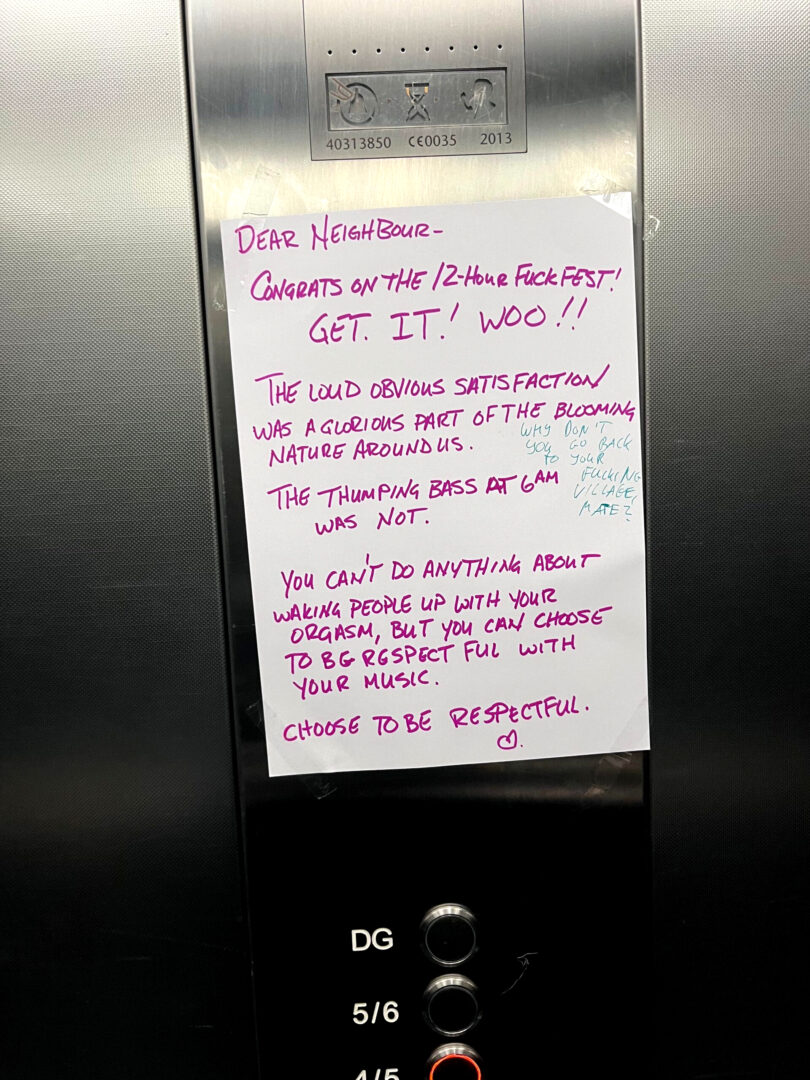 40313850 CE0035 2013
DEAR NEIGHBOUR-
CONGRATS ON THE 12-HOUR FUCKFEST!
GET. IT! WOO!!
THE LOUD OBVIOUS SATISFACTION
WAS A GLORIOUS PART OF THE BLOOMING
NATURE AROUND US.
WHY DON'T
YOU GO BACK
TO YOUR
FUCKING
VILLAGE,
MATE?
THE THUMPING BASS AT 6AM
WAS NOT.
YOU CAN'T DO ANYTHING ABOUT
WAKING PEOPLE UP WITH YOUR
ORGASM, BUT YOU CAN CHOOSE
TO BE RESPECTFUL WITH
YOUR MUSIC.
CHOOSE TO BE RESPECTFUL.
DG
5/6
4/5